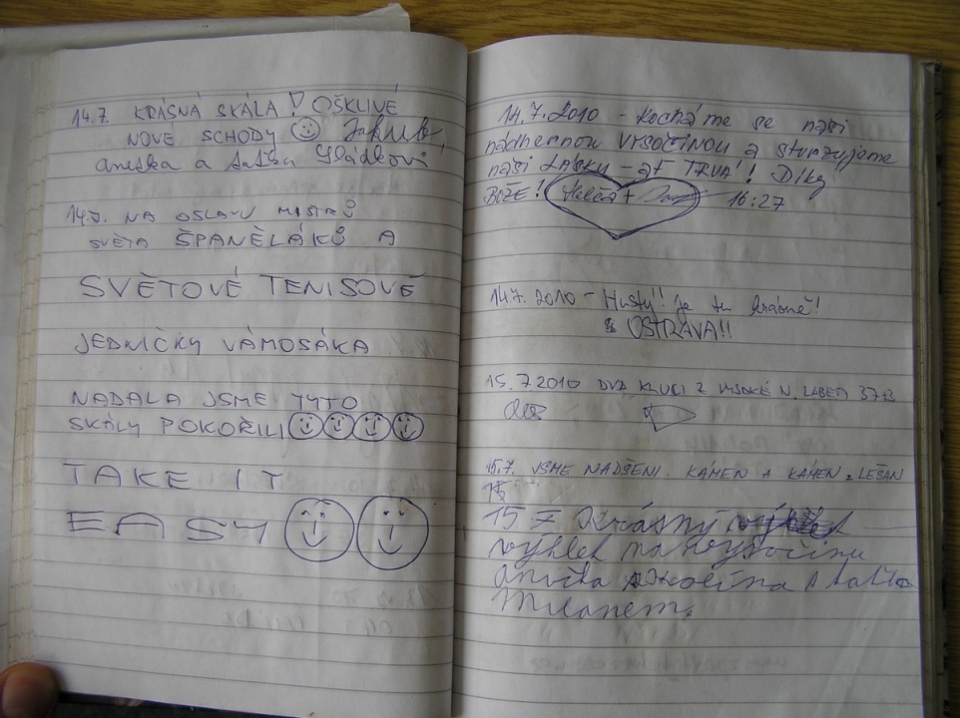 14.7. KRÁSNÁ SKÁLA! OŠKLIVÉ
NOVÉ SCHODY Jakub,
Anežka a Sládkovi
14.7. NA OSLAVU MISTRŮ
SVĚTA ŠPANĚLÁKŮ A
SVĚTOVÉ TENISOVÉ
JEDNIČKY VÁMOSÁKA
NADALA JSME TYTO
SKÁLY POKOŘILI
TAKE IT
EASY
14.7.2010 - Kocháme se naší
nádhernou VYSOČINOU a stvrzujeme
naši LÁSKU - ať TRVÁ! Díky
BOŽE! + 16:27
14.7. 2010 - Hustý!! je tu krásně!
OSTRAVA!!
15.7 2010 DVA KLUCI Z VYSOKÉ N. LABEM
15.7. JSME NADŠENI. KÁMEN A KÁMEN.
15
15 7 Krásný
výhled na vysočinu
Milanem.